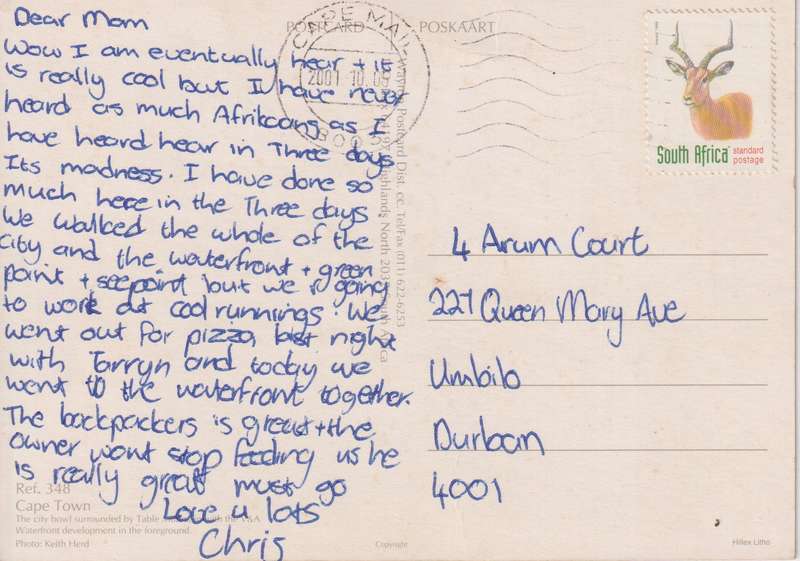 POSTCARD POSKAART
CAPE MAIL
2001 10 05
Dear Mom
Wow I am eventually hear + it
is really cool but I have never
heard as much Afrikaans as I
have heard hear in Three days
Its madness. I have done so
much here in the Three days
We walked the whole of the
city and the waterfront + green
point + seapoint but we r going
to work at cool runnings. We
went out for pizza last night
with Tarryn and today we
went to the waterfront together.
The backpackers is great + the
owner wont stop feeding us he
is really great must go
Love u lots
Chris
South Africa standard
postage
4 Arum Court
227 Queen Mary Ave
Umbilo
Durban
4001
Postcard Dist. cc. Tel/Fax (011) 622-6253
Highlands North 203
Ref. 348
Cape Town
The city bowl surrounded by Table
Waterfront development in the foreground.
Photo: Keith Herd
Copyright
Hillex Litho